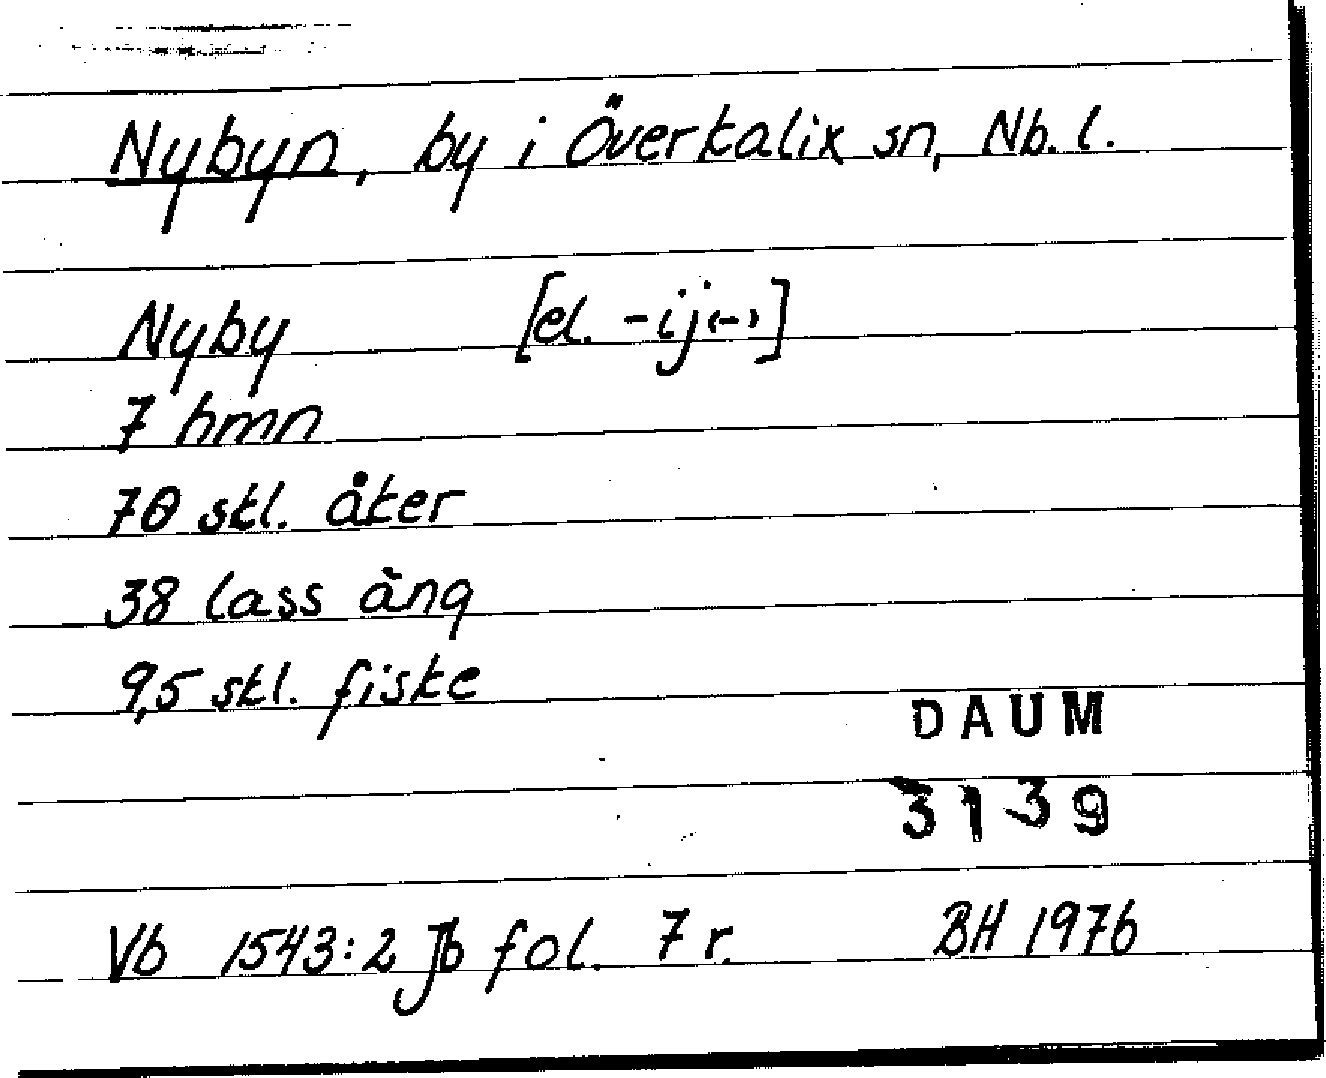 Nybyn, by i Överkalix sn, Nb. l.
Nyby [el. -ij(-)]
7 hmn
70 skl. åker
38 lass äng
9,5 skl. fiske
DAUM
3139
Vb 1543:2 Jb fol. 7 r. BH 1976